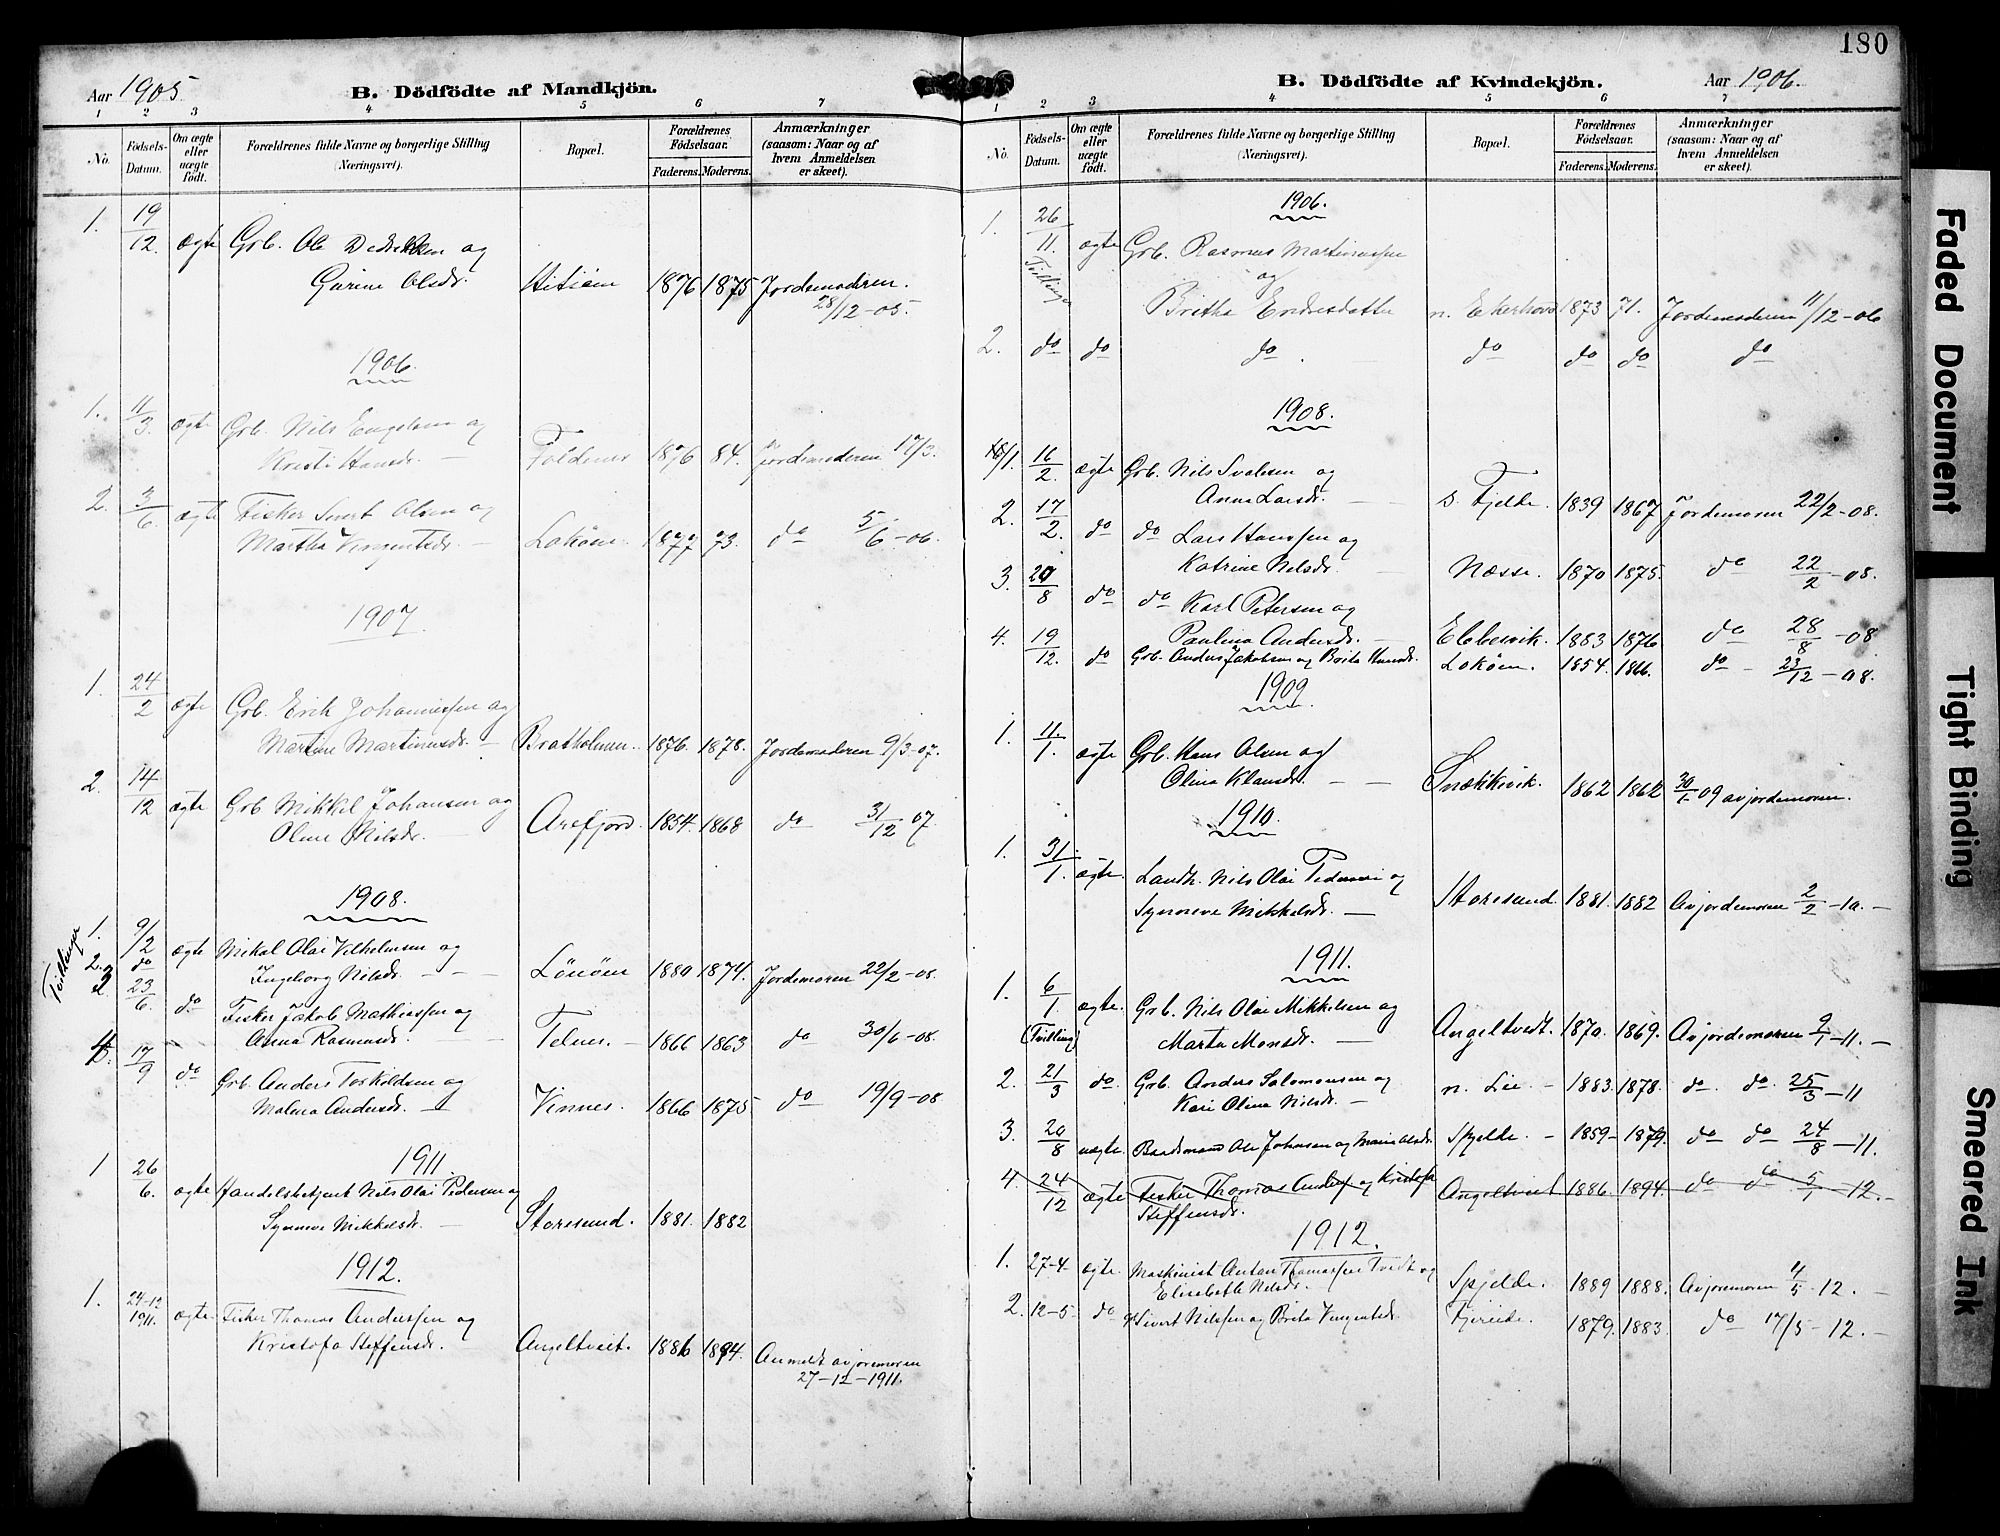 180
Aar 1905.
B. Dödfödte af Mandkjön.
1 2 3 4 5 6 7
No.
Födsels-Datum.
Om ægte eller uægte födt.
Forældrenes fulde Navne og borgerlige Stilling (Næringsvei).
Bopæl.
Forældrenes Födselsaar.
Faderens. Moderens.
Anmærkninger (saasom: Naar og af hvem Anmeldelsen er skeet).
1. 19/12 ægte Grb. Ole Dedrikksen og
Gurine Olsdr. Hitiöen 1876 1875 Jordemoderen.
28/12-05.
1906.
1. 11/3 ægte Grb. Nils Engelsen og
Kristi Hansdr. — Foldnes 1876 84. Jordemoderen 17/3.
2. 3/6 ægte Fisker Sivert Olsen og
Martha Vingentsdr. — Loköen. 1877 73. do 5/6-06.
1907.
1. 24/2 ægte Grb. Erik Johannessen og
Martine Martinusdr. — Bratholmen. 1876. 1878. Jordemoderen 9/3-07.
2. 14/12 ægte Grb Mikkel Johansen og
Oline Nilsdr. — Arefjord. 1854. 1868 do 31/12 07.
1908.
Tvillinger
1. 9/2 ægte Mikal Olai Vilhelmsen og
2. do Ingeborg Nilsdr. — — Lönöen 1880 1874. Jordemoren 22/2-08.
3. 23/6 do Fisker Jakob Mathiassen og
Anna Rasmusdr. — Telnes. — 1866 1863 do 30/6-08.
4. 17/9 do Grb. Anders Toskildsen og
Malena Andersdr. — Vinnes. 1866 1875 do 19/9-08
1911.
1 26/6. ægte Handelsbetjent Nils Olai Pedersen og
Synneve Mikkelsdr. — Storesund. 1881. 1882
1912.
1. 24-12 1911. ægte Fisker Thomas Anderssen og
Kristofa Steffensdr. Angeltveit. 1886 1894. Anmeldt av joremoren
27-12-1911.
B. Dödfödte af Kvindekjön.
Aar 1906.
1 2 3 4 5 6 7
No.
Födsels-Datum.
Om ægte eller uægte födt.
Forældrenes fulde Navne og borgerlige Stilling (Næringsvei).
Bopæl.
Forældrenes Födselsaar.
Faderens. Moderens.
Anmærkninger (saasom: Naar og af hvem Anmeldelsen er skeet).
1906.
1. 26/11. ægte Grb. Rasmus Martinussen
Tvillinger og
Britha Endresdatter n. Ekerhovd 1873 71. Jordemoderen 11/12-06
2. do do do. do do do do
1908.
1. 16/2 ægte Grb. Nils Svalesen og
Anna Larsdr. — s. Fjelde. 1839 1867 Jordemoren 22/2-08.
2. 17/2. do do Lars Hanssen og
Katrine Nilsdr. — Næsse. 1870 1875. do 22/2-08.
3. 20/8 do do Karl Petersen og
Paulina Andersdr. — Ebbesvik. 1883 1876 do 28/8-08
4. 19/12. do Grb. Anders Jakobsen og Brita Hansdr. Loköen. 1854. 1866. do — 23/12-08.
1909.
1. 11/1. ægte Grb. Hans Olsen og
Olina Klausdr. — — Snækkevik. 1862 1862 30/1-09 av jordemoren.
1910.
1. 31/1. ægte. Landh. Nils Olai Pedersen og
Synneve Mikkelsdr. — Storesund. 1881. 1882 Av jordemoren 2/2-10.—
1911.
1. 6/1 ægte. Grb. Nils Olai Mikkelsen og
(Tvilling) Marta Monsdr. — Angeltvedt. 1870. 1869. Av jordemoren 9/1-11.—
2. 21/3 do. Grb. Anders Salomonsen og
Kari Olina Nilsdr. — n. Lie. — 1883. 1878. do. do. 25/3-11
3. 20/8 uægte. Baadsmand Ole Johansen og Marie Olsdr. Spjelde. — 1859— 1879. do do 24/8-11.
4. 24/12 ægte Fisker Thomas Anders og Kristofa
Steffensdr. Angeltveit 1886. 1894. do do 5/1-12.—
1912.
1. 27-4- ægte. Maskinist Anton Thomassen Tvedt og
Elisabeth Nilsdr. — Spjelde. 1889 1888. Av joremoren 4/5-12.—
2. 12-5- do Sivert Nilssen og Brita Vingentsd. Fjereide. 1879. 1883. do 17/5-12.—
Faded Document
Tight Binding
Smeared Ink